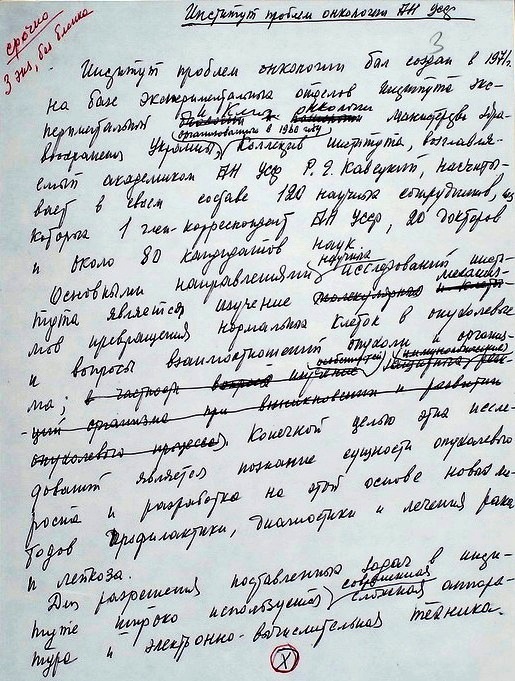 Институт проблем онкологии АН УССР
срочно
3 экз, без бланка
3
Институт проблем онкологии был создан в 1971г.
на базе экспериментальных отделов Института экс-
периментальной и клин. онкологии Министерства здра-
воохранения Украины, организованного в 1960 году
Коллектив института, возглавля-
емый академиком АН УССР Р.Е. Кавецким, насчиты-
вает в своем составе 120 научных сотрудников, из
которых 1 член-корреспондент АН УССР, 20 докторов
и около 80 кандидатов наук.
Основными направлениями научных исследований инсти-
тута является изучение молекулярных механиз-
мов превращения нормальных клеток в опухолевые
и вопросы взаимоотношений опухоли и организ-
ма; в частности вопросы изучение особенностей иммунологических реак-
ций организма при возникновении и развитии
опухолевого процесса. Конечной целью этих иссле-
дований является познание сущности опухолевого
роста и разработка на этой основе новых ме-
тодов профилактики, диагностики и лечения рака
и лейкоза.
Для разрешения поставленных задач в инсти-
туте широко используется современная сложная аппара-
тура и электронно-вычислительная техника.
X